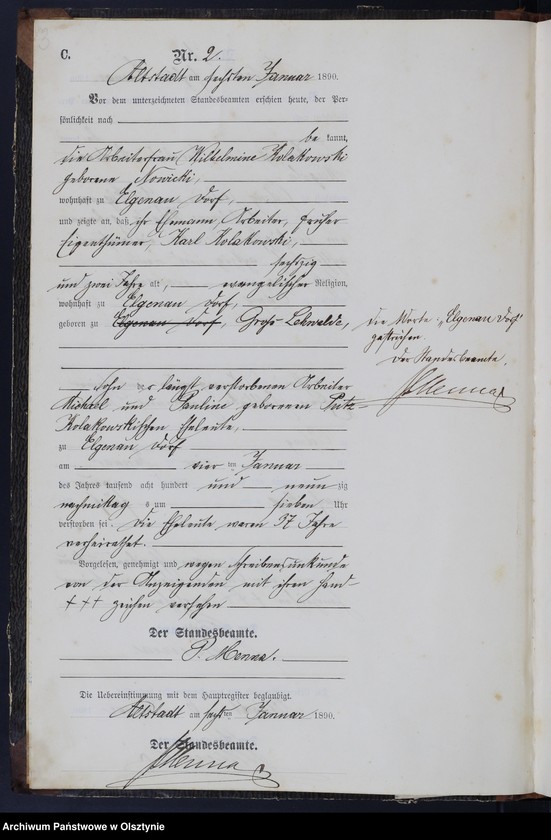 C.
Nr. 2.
Altstadt am sechsten Januar 1890.
Vor dem unterzeichneten Standesbeamten erschien heute, der Per-
sönlichkeit nach
be kannt,
die Arbeiterfrau Wilhelmine Kolakowski
geborene Nowicki,
wohnhaft zu Elgenau Dorf,
und zeigte an, daß ihr Ehemann, Arbeiter, früher
Eigenthümer, Karl Kolakowski,
sechszig
und zwei Jahre alt, evangelischer Religion,
wohnhaft zu Elgenau Dorf,
geboren zu Elgenau Dorf, Groß Lehwalde,
Sohn der längst verstorbenen Arbeiter
Michael und Pauline geborenen
Kolakowskischen Eheleute,
zu Elgenau Dorf
am vier ten Januar
des Jahres tausend acht hundert und neun zig
nachmittag s um sieben Uhr
verstorben sei. Die Eheleute waren 37 Jahre
verheirathet.
Vorgelesen, genehmigt und wegen Schreibensunkunde
von der Anzeigenden mit ihren Hand-
+ + + zeichen versehen
Der Standesbeamte.
P. Menna.
Die Uebereinstimmung mit dem Hauptregister beglaubigt.
Altstadt am sechsten Januar 1890.
Der Standesbeamte.
Menna
Die Worte "Elgenau Dorf"
gestrichen.
Der Standesbeamte.
Menna
Archiwum Państwowe w Olsztynie